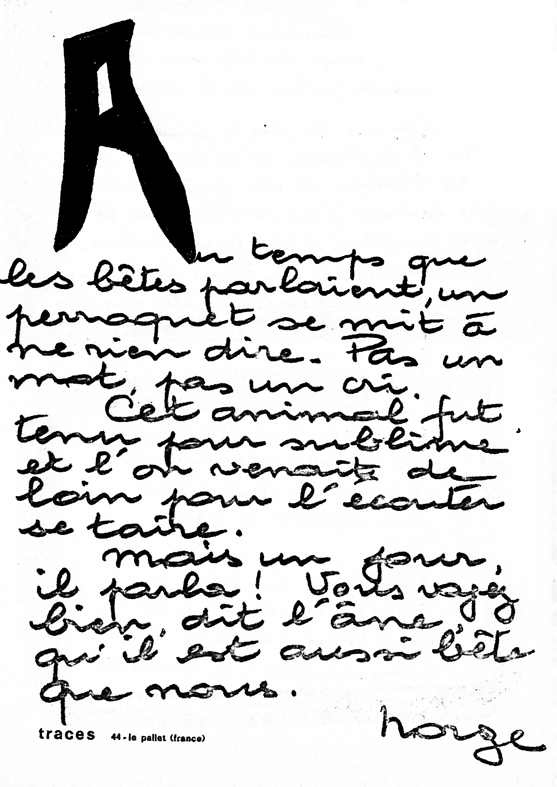 Au temps que
les bêtes parlaient, un
perroquet se mit à
ne rien dire. Pas un
mot, pas un cri.
Cet animal fut
tenu pour sublime
et l'on venait de
loin pour l'écouter
se taire.
Mais un jour,
il parla! Vous voyez
bien, dit l'âne,
qu'il est aussi bête
que nous.
norge
traces 44-le pallet (france)